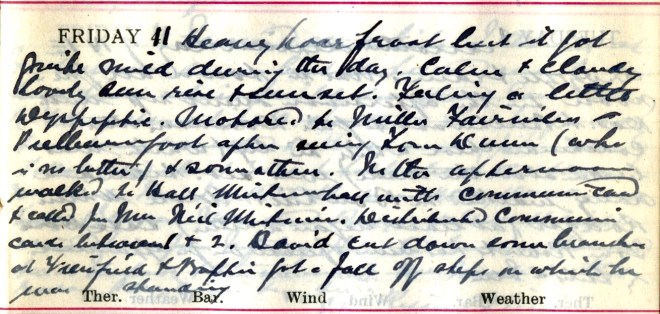 FRIDAY 11 Heavy hoar frost but it got
quite mild during the day. Calm & cloudy
lovely sun rise & sunset. Feeling a little
dyspeptic. Motored to Miller
foot after seeing Tom Dunn (who
is no better) & some others. In the afternoon
walked to Hall with Communion card
& called for Mrs Neil. Distributed Communion
cards between 1 & 2. David cut down some branches
at & got a fall off steps on which he
was standing
Ther. Bar. Wind Weather